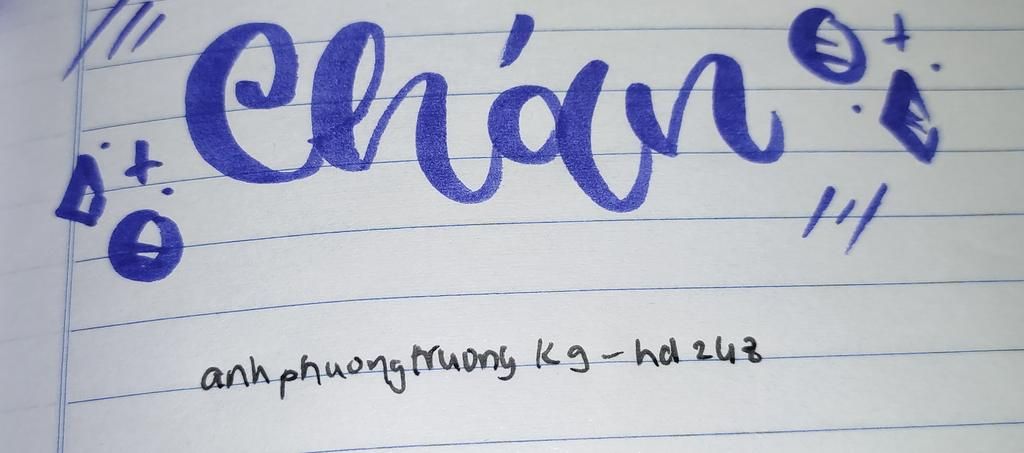 Chán
anhphuongtruong kg - hd 248